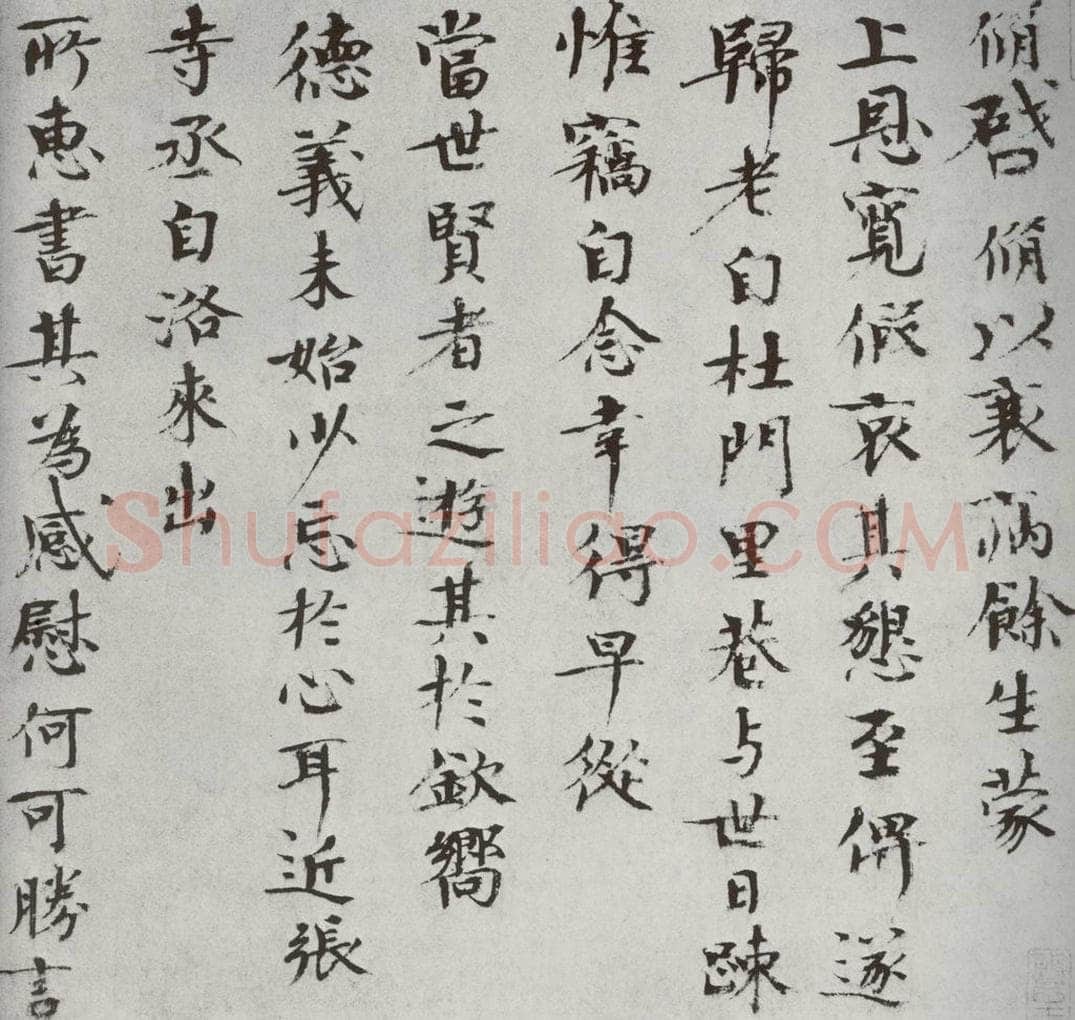 脩啓脩以衰病餘生蒙
上恩寬假哀其懇至俾遂
歸老自杜門里巷与世日踈
惟竊自念幸得早從
當世賢者之遊其於欽嚮
德義未始少忘於心耳近張
寺丞自洛來出
所惠書其為感慰何可勝言
Shufaziliao.COM